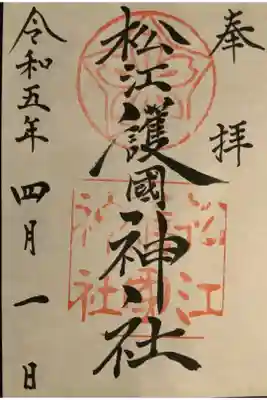 奉拝
松江護國神社
令和五年四月一日
松江護國神社